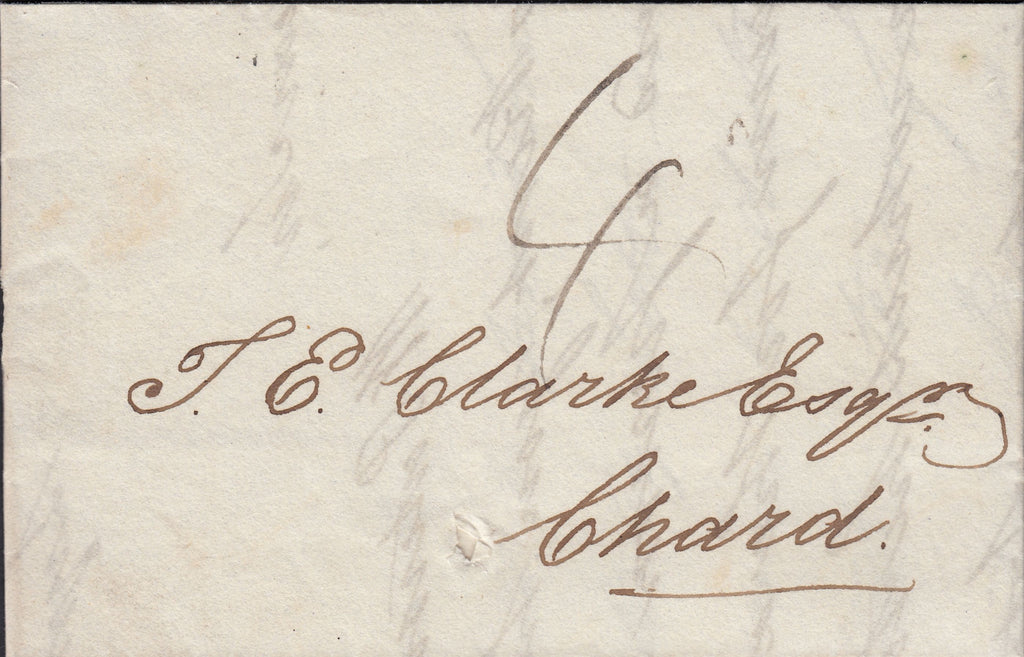 4
T. E. Clarke Esqr.
Chard.